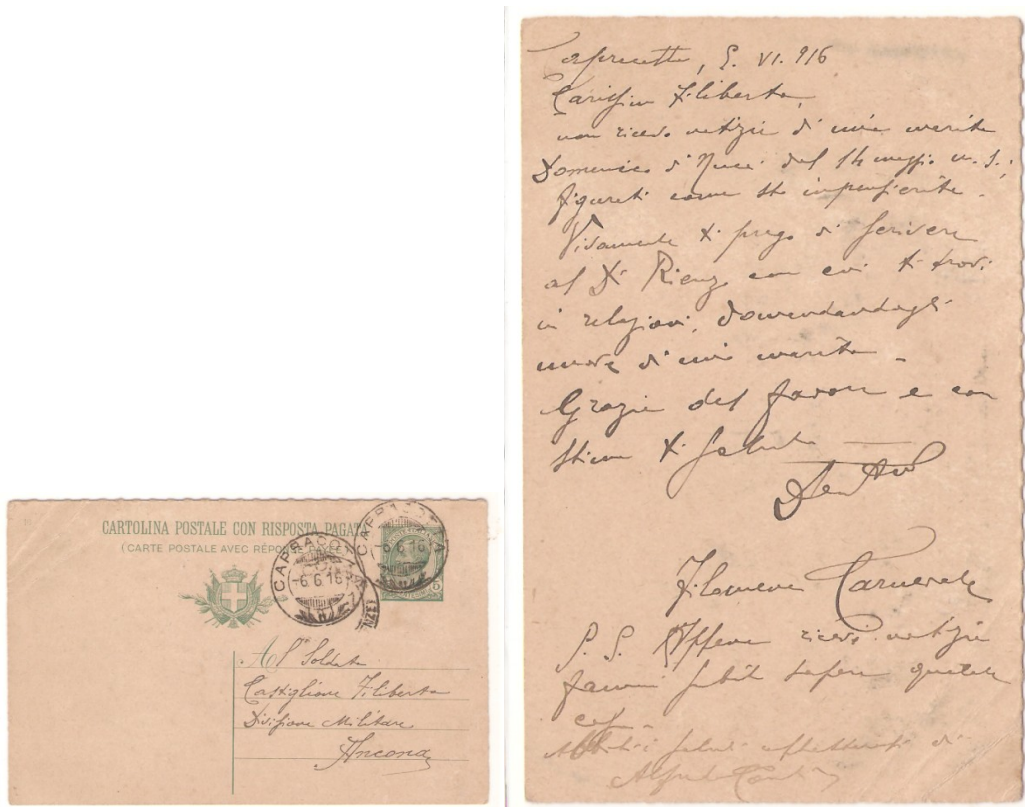 CARTOLINA POSTALE CON RISPOSTA PAGATA
(CARTE POSTALE AVEC RÉPONSE
CAPRACOTTA
-6.6.16
CAPRACOTTA
-6.6.16
Al Soldato
Castiglione Filiberto
Divisione Militare
Ancona
Capracotta, 5. VI. 916
Carissimo Filiberto,
non ricevo notizie di mio marito
Domenico di Nucci dal 14 maggio u. s.;
figurati come sto impensierita.
Vivamente ti prego di scrivere
al Di Rienzo con cui ti trovi
in relazioni, domandandogli
nuove di mio marito.
Grazie del favore e con
stima ti saluto
Filomena Carnevale
P. S. Appena ricevi notizie
fammi subito sapere qualche
saluti affettuosi di
Alfredo